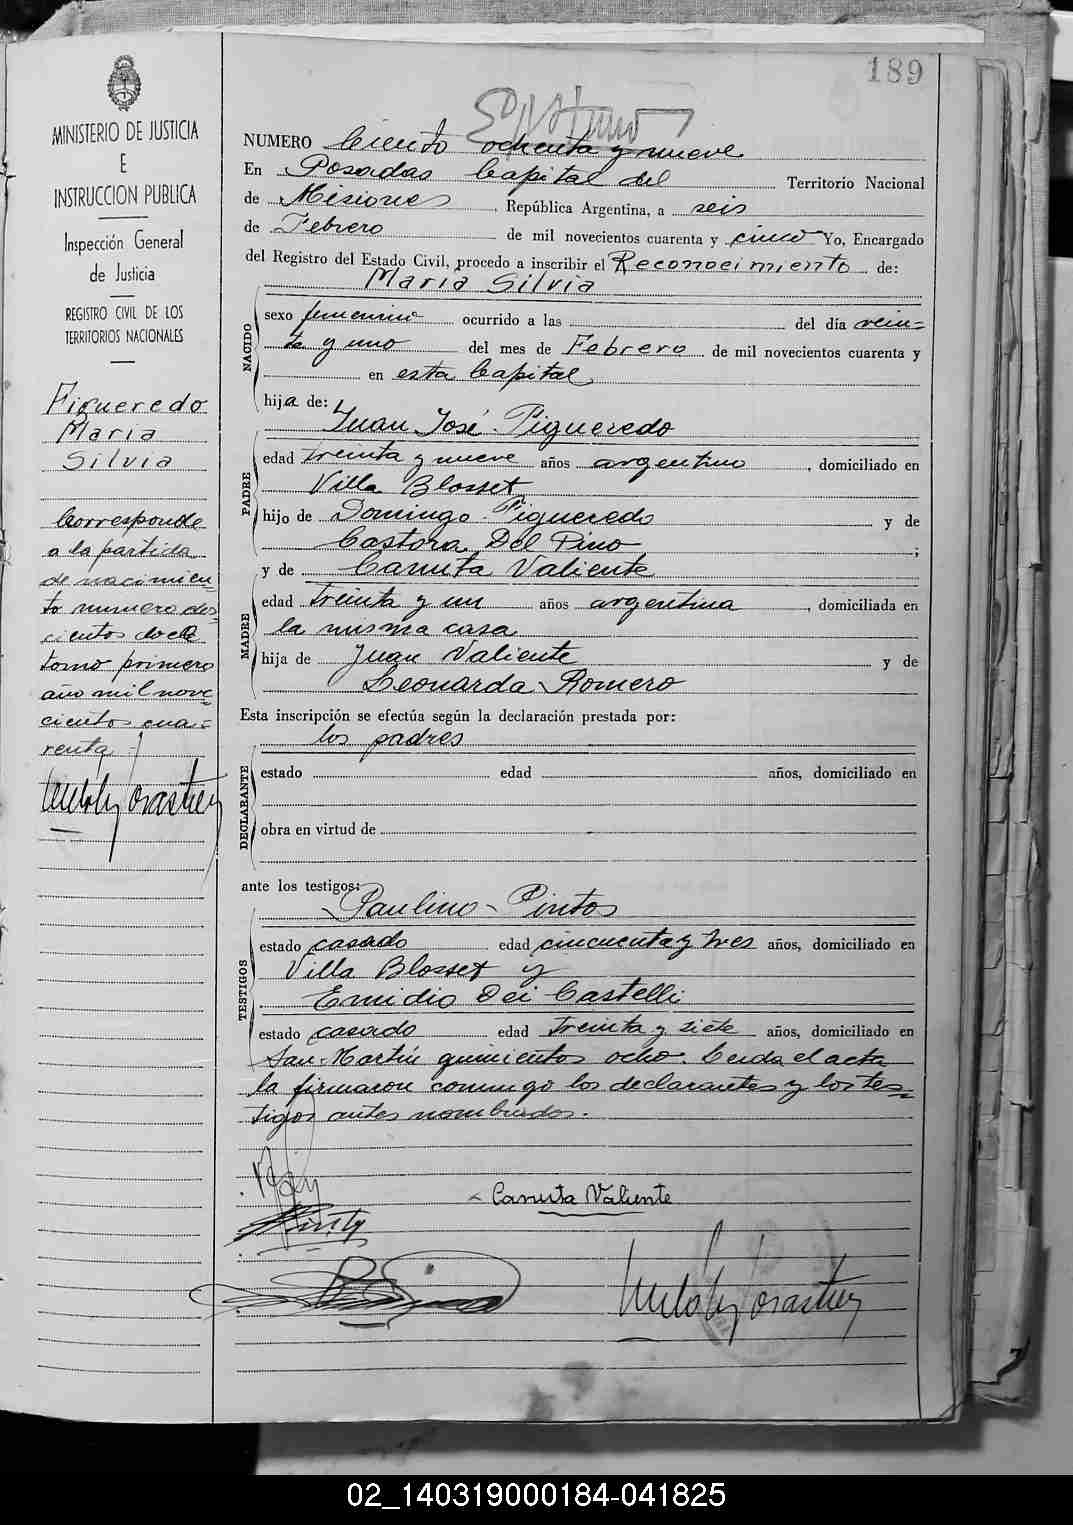 189
MINISTERIO DE JUSTICIA
E
INSTRUCCION PUBLICA
Inspección General
de Justicia
REGISTRO CIVIL DE LOS
TERRITORIOS NACIONALES
Figueredo
Maria
Silvia
Corresponde
a la partida
de nacimien-
to numero dos-
cientos doce
tomo primero
año mil nove-
cientos cua-
renta
NUMERO Ciento ochenta y nueve
En Posadas Capital del Territorio Nacional
de Misiones, República Argentina, a seis
de Febrero de mil novecientos cuarenta y cinco Yo, Encargado
del Registro del Estado Civil, procedo a inscribir el Reconocimiento de:
Maria Silvia
NACIDO
sexo femenino ocurrido a las del día vein-
te y uno del mes de Febrero de mil novecientos cuarenta y
en esta Capital
hija de:
Juan José Figueredo
PADRE
edad treinta y nueve años argentino, domiciliado en
Villa Blosset
hijo de Domingo Figueredo y de
Castora Del Pino;
y de Canuta Valiente
MADRE
edad treinta y un años argentina, domiciliada en
la misma casa
hija de Juan Valiente y de
Leonarda Romero
Esta inscripción se efectúa según la declaración prestada por:
los padres
DECLARANTE
estado edad años, domiciliado en
obra en virtud de
ante los testigos:
Paulino Pintos
TESTIGOS
estado casado edad cincuenta y tres años, domiciliado en
Villa Blosset y
Emidio Dei Castelli
estado casado edad treinta y siete años, domiciliado en
San Martín quinientos ocho. Leida el acta
la firmaron conmigo los declarantes y los tes-
tigos antes nombrados.
Canuta Valiente
02_140319000184-041825